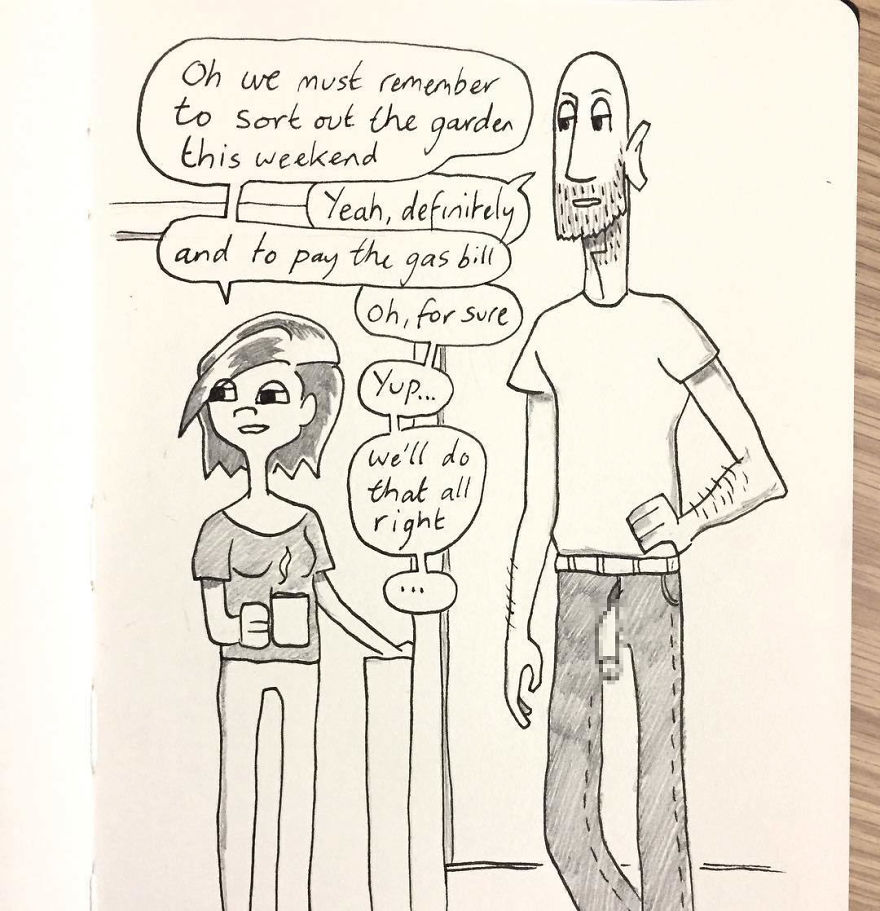 Oh we must remember
to sort out the garden
this weekend
Yeah, definitely
and to pay the gas bill
Oh, for sure
Yup...
we'll do
that all
right
...